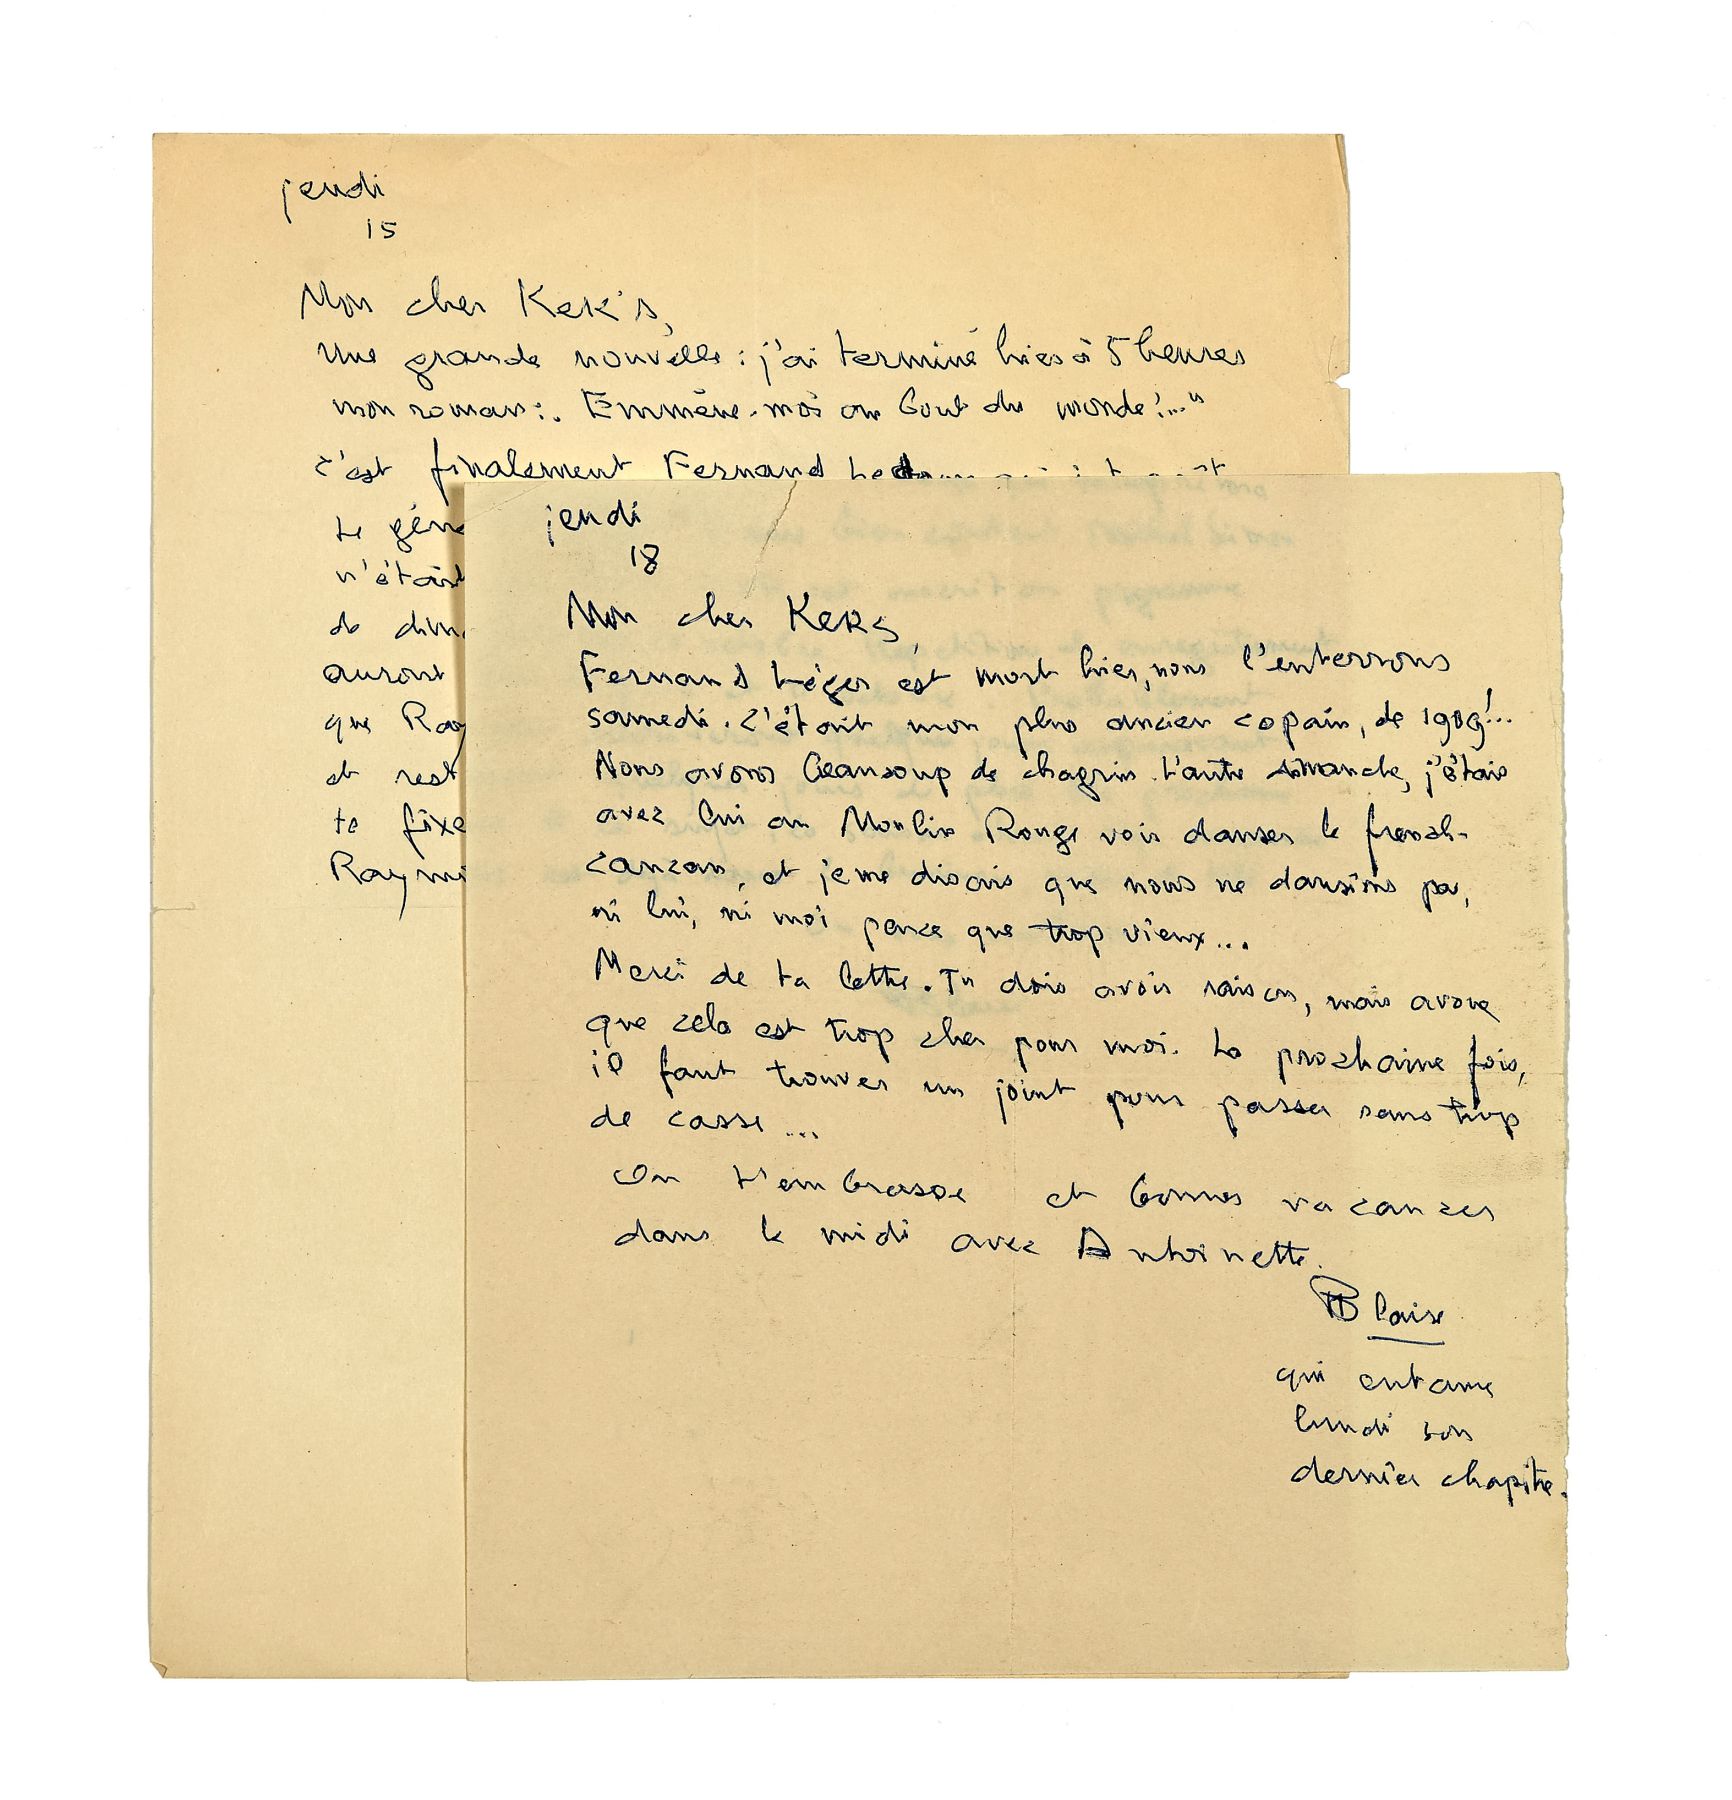 jeudi
15
Mon cher Kek's,
Une grande nouvelle : j'ai terminé hier à 5 heures
mon roman :. Emmène-moi au bout du monde !..."
c'est finalement Fernand
Le géné
n'était
de dim
auront
que Ray
et rest
te fixe
Raym
jeudi
18
Mon cher Keks,
Fernand Léger est mort hier, nous l'enterrons
samedi. C'était mon plus ancien copain, de 1909 !...
Nous avons beaucoup de chagrin. L'autre dimanche, j'étais
avec lui au Moulin Rouge voir danser le french-
cancan, et je me disais que nous ne dansions pas,
ni lui, ni moi parce que trop vieux...
Merci de ta lettre. Tu dois avoir raison, mais avoue
que cela est trop cher pour moi. La prochaine fois,
il faut trouver un joint pour passer sans trop
de casse ...
On t'embrasse et bonnes vacances
dans le midi avec Antoinette.
Blaise
qui entame
lundi son
dernier chapitre.